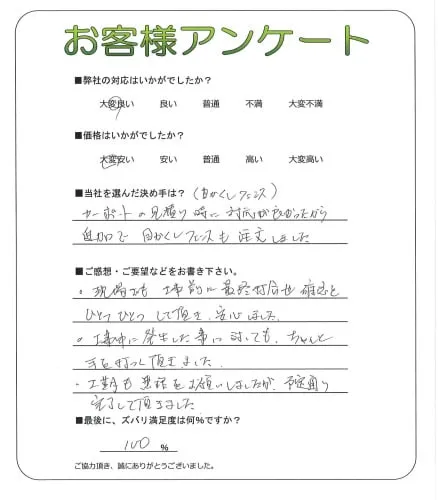 お客様アンケート
■弊社の対応はいかがでしたか?
大変良い 良い 普通 不満 大変不満
■価格はいかがでしたか?
大変安い 安い 普通 高い 大変高い
■当社を選んだ決め手は?(目かくしフェンス)
カーポートの見積り時に対応が良かったから
追加で目かくしフェンスも注文しました
■ご感想・ご要望などをお書き下さい。
・現場でも工事前に最終打合せ確認と
ひとつひとつして頂き、安心しました。
・工事中に発生した事に対しても、ちゃんと
手を打って頂きました。
・工事も無理をお願いしましたが、予定通り
完了して頂きました
■最後に、ズバリ満足度は何%ですか?
100 %
ご協力頂き、誠にありがとうございました。